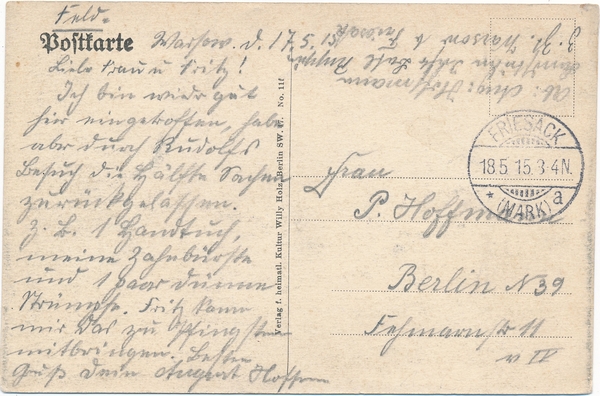 Feld-
Postkarte
Warsow. d. 17.5.15
Liebe Frau u Fritz!
Ich bin wieder gut
hier eingetroffen, habe
aber durch Rudolfs
Besuch die Hälfte Sachen
zurückgelassen.
Z. B. 1 Handtuch,
meine Zahnbürste
und 1 paar dünne
Strümpfe. Fritz kann
mir das zu Pfingsten
mitbringen. Besten
Gruß Dein August Hoffmann
Verlag f. heimatl. Kultur Willy Holz, Berlin SW. No. 11f
Hoffmann
Landsturm
Warsow b Friesack
FRIESACK
18.5.15.3-4N.
* (MARK) a
Frau
P. Hoffmann
Berlin N 39
Fehmarnstr 11
v IV